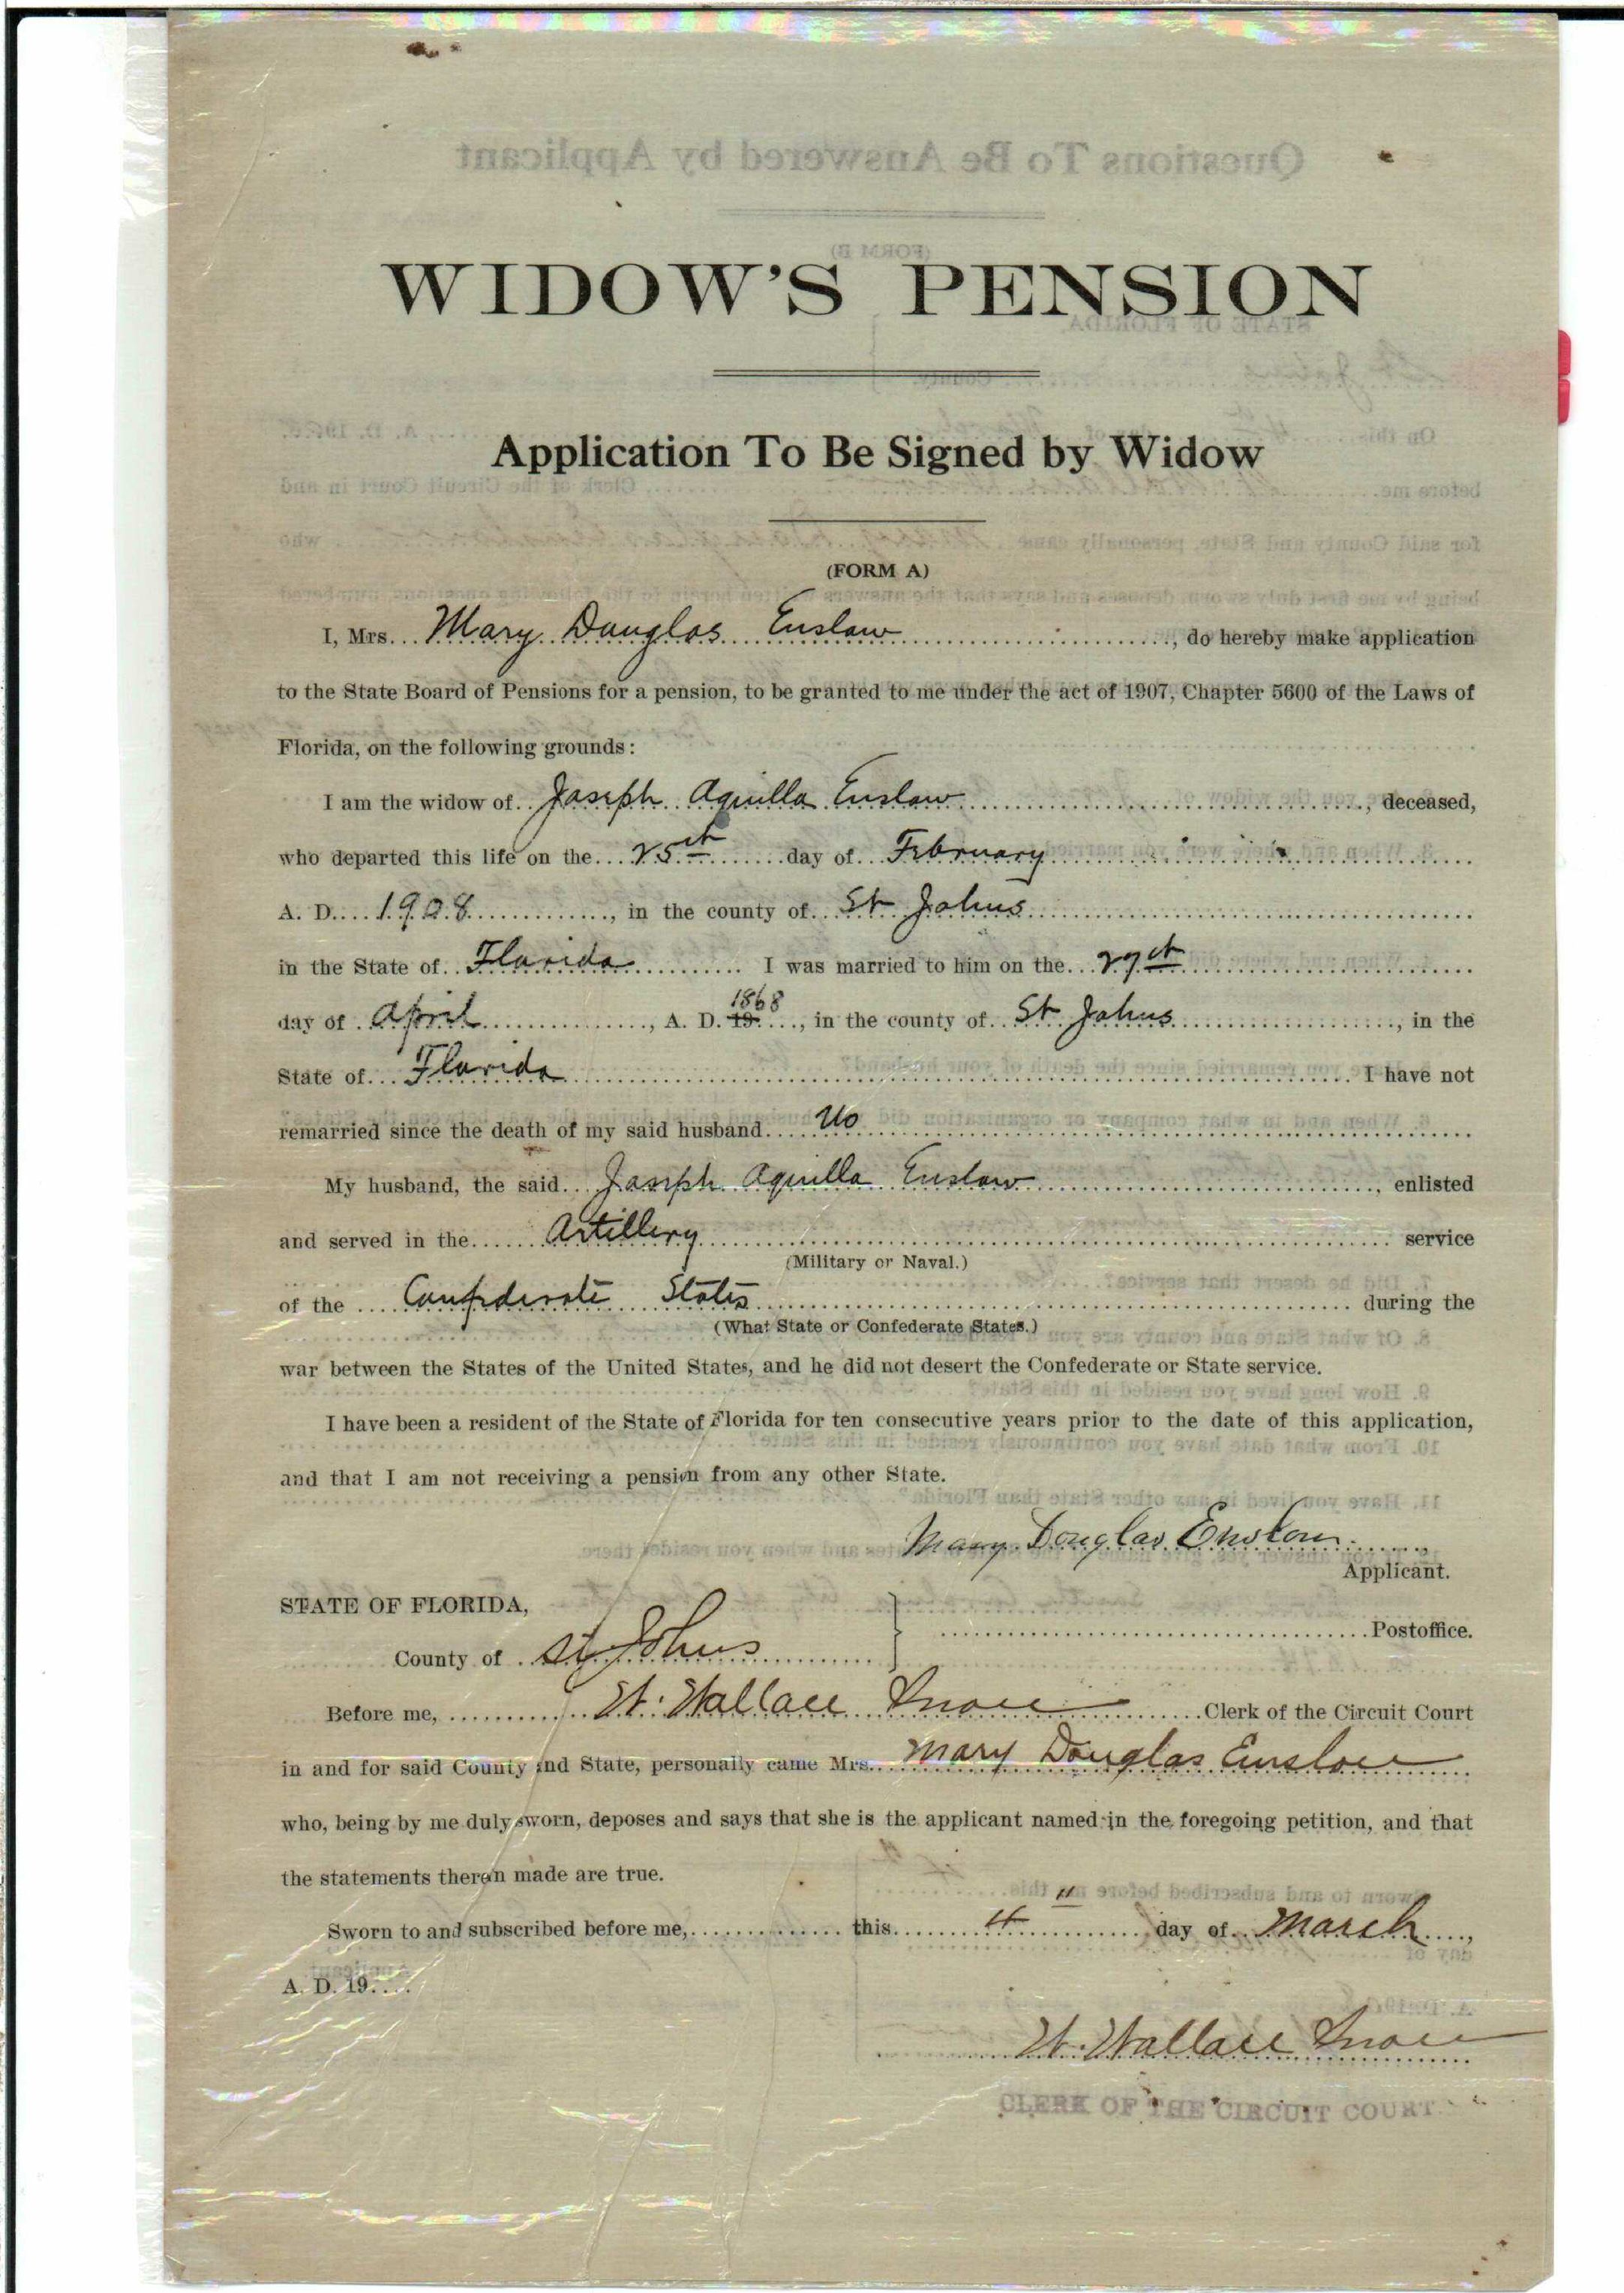 WIDOW'S PENSION
Application To Be Signed by Widow
(FORM A)
I, Mrs. Mary Douglas Enslow, do hereby make application
to the State Board of Pensions for a pension, to be granted to me under the act of 1907, Chapter 5600 of the Laws of
Florida, on the following grounds:
I am the widow of Joseph Aquilla Enslow, deceased,
who departed this life on the 25th day of February
A. D. 1908, in the county of St Johns
in the State of Florida I was married to him on the 27th
day of April, A. D. 19 1868, in the county of St Johns, in the
State of Florida I have not
remarried since the death of my said husband No
My husband, the said Joseph Aquilla Enslow, enlisted
and served in the Artillery service
(Military or Naval.)
of the Confederate States during the
(What State or Confederate States.)
war between the States of the United States, and he did not desert the Confederate or State service.
I have been a resident of the State of Florida for ten consecutive years prior to the date of this application,
and that I am not receiving a pension from any other State.
Mary Douglas Enslow
Applicant.
STATE OF FLORIDA,
Postoffice.
County of St Johns
Before me, W. Wallace Snow Clerk of the Circuit Court
in and for said County and State, personally came Mrs. Mary Douglas Enslow
who, being by me duly sworn, deposes and says that she is the applicant named in the foregoing petition, and that
the statements therein made are true.
Sworn to and subscribed before me, this 4" day of March,
A. D. 19
W. Wallace Snow
CLERK OF THE CIRCUIT COURT